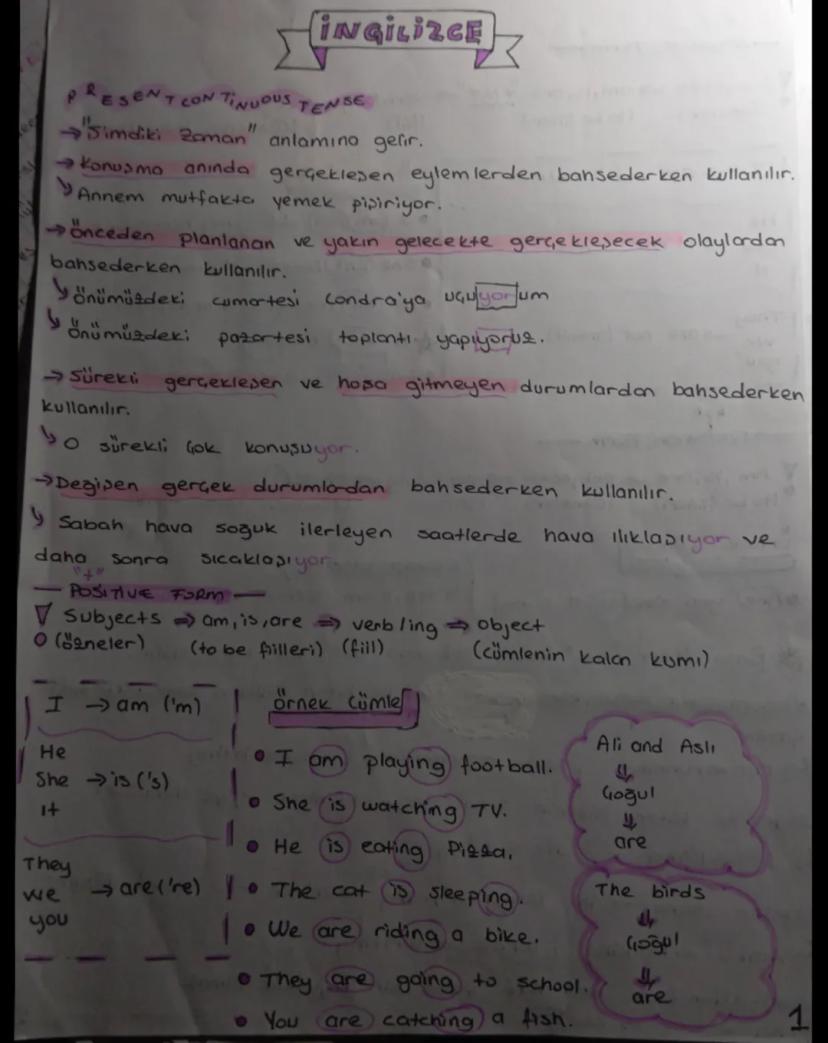 İNGİLİZCE
PRESENT CONTINUOUS TENSE
→ "Şimdiki Zaman" anlamına gelir.
→ Konuşma anında gerçekleşen eylemlerden bahsederken kullanılır.
↳ Annem mutfakta yemek pişiriyor.
→ Önceden planlanan ve yakın gelecekte gerçekleşecek olaylardan
bahsederken kullanılır.
↳ Önümüzdeki cumartesi Londra'ya uçuyorum
↳ Önümüzdeki pazartesi toplantı yapıyoruz.
→ Sürekli gerçekleşen ve hoşa gitmeyen durumlardan bahsederken
kullanılır.
↳ O sürekli çok konuşuyor.
→ Değişen gerçek durumlardan bahsederken kullanılır.
↳ Sabah hava soğuk ilerleyen saatlerde hava ılıklaşıyor ve
daha sonra sıcaklaşıyor.
"+"
— POSITIVE FORM —
Subjects ⇒ am, is, are ⇒ verb/ing ⇒ object
(özneler) (to be fiilleri) (fiil) (cümlenin kalan kısmı)
I → am ('m)
He
She → is ('s)
It
They
we → are ('re)
you
örnek cümle
• I am playing football.
• She is watching TV.
• He is eating pizza.
• The cat is sleeping.
• We are riding a bike.
• They are going to school.
• You are catching a fish.
Ali and Aslı
⇓
çoğul
⇓
are
The birds
⇓
çoğul
⇓
are
1